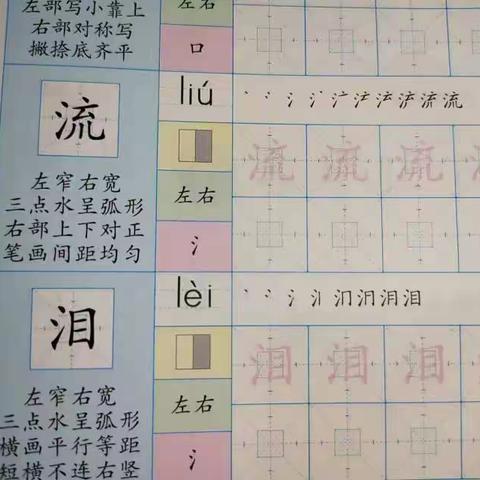 左部写小靠上
右部对称写
撇捺底齐平
左右
口
流
左窄右宽
三点水呈弧形
右部上下对正
笔画间距均匀
liú
左右
氵
流 流 流 流
泪
左窄右宽
三点水呈弧形
横画平行等距
短横不连右竖
lèi
左右
氵
泪 泪 泪 泪